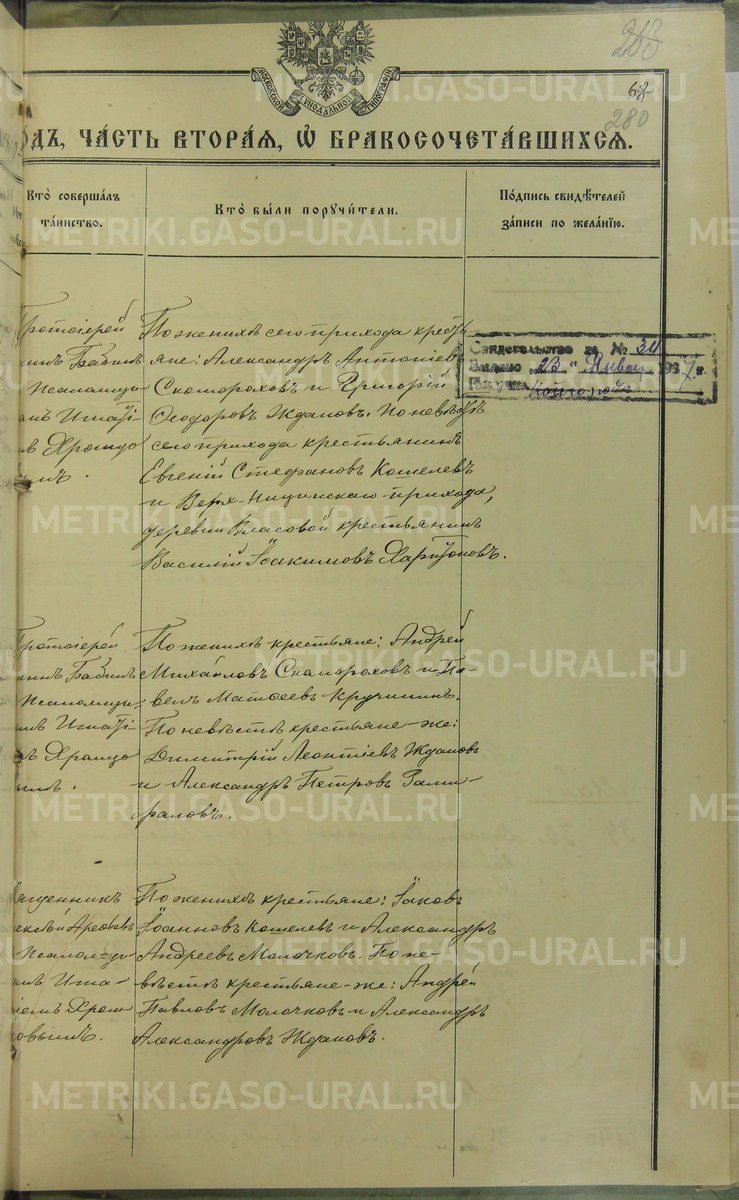 283
МОСКОВСКОЙ СѴНОДАЛЬНОЙ ТИПОГРАФІИ
68
280
ОДЪ, ЧАСТЬ ВТОРАЯ, Ѡ БРАКОСОЧЕТАВШИХСЯ.
Кто совершалъ таинство.
Кто были поручители.
Подпись свидѣтелей записи по желанію.
Протоіерей
Бабинъ
Псаломщи-
Игнаті
Хромцо
По женихѣ сего прихода кресть
яне: Александръ Антоніевъ
Скомороховъ и Григорій
Ѳеодоровъ Ждановъ. По невѣстѣ
сего прихода крестьянинъ
Евгеній Стефановъ Кошелевъ
и Верх-Ницинскаго прихода,
деревни Власовой крестьянинъ
Василій Іоакимовъ Харитоновъ.
Свидетельство за № 34
Выдано "23" Январ 1937 г.
Протоіерей
Бабинъ
Псаломщи-
Игнаті
Хромцо
По женихѣ крестьяне: Андрей
Михаиловъ Скомороховъ и Па-
велъ Матѳеевъ Кручининъ.
По невѣстѣ крестьяне-же:
Димитрій Леонтіевъ Ждановъ
и Александръ Петровъ Зами-
раловъ.
вященникъ
Арефьевъ
Псалом-щи-
Игна-
іемъ Хром-
овымъ.
По женихѣ крестьяне: Іаковъ
Іоанновъ Кошелевъ и Александръ
Андреевъ Молочковъ. По не-
вѣстѣ крестьяне-же: Андрей
Павловъ Молочковъ и Александръ
Александровъ Ждановъ.
METRIKI.GASO-URAL.RU